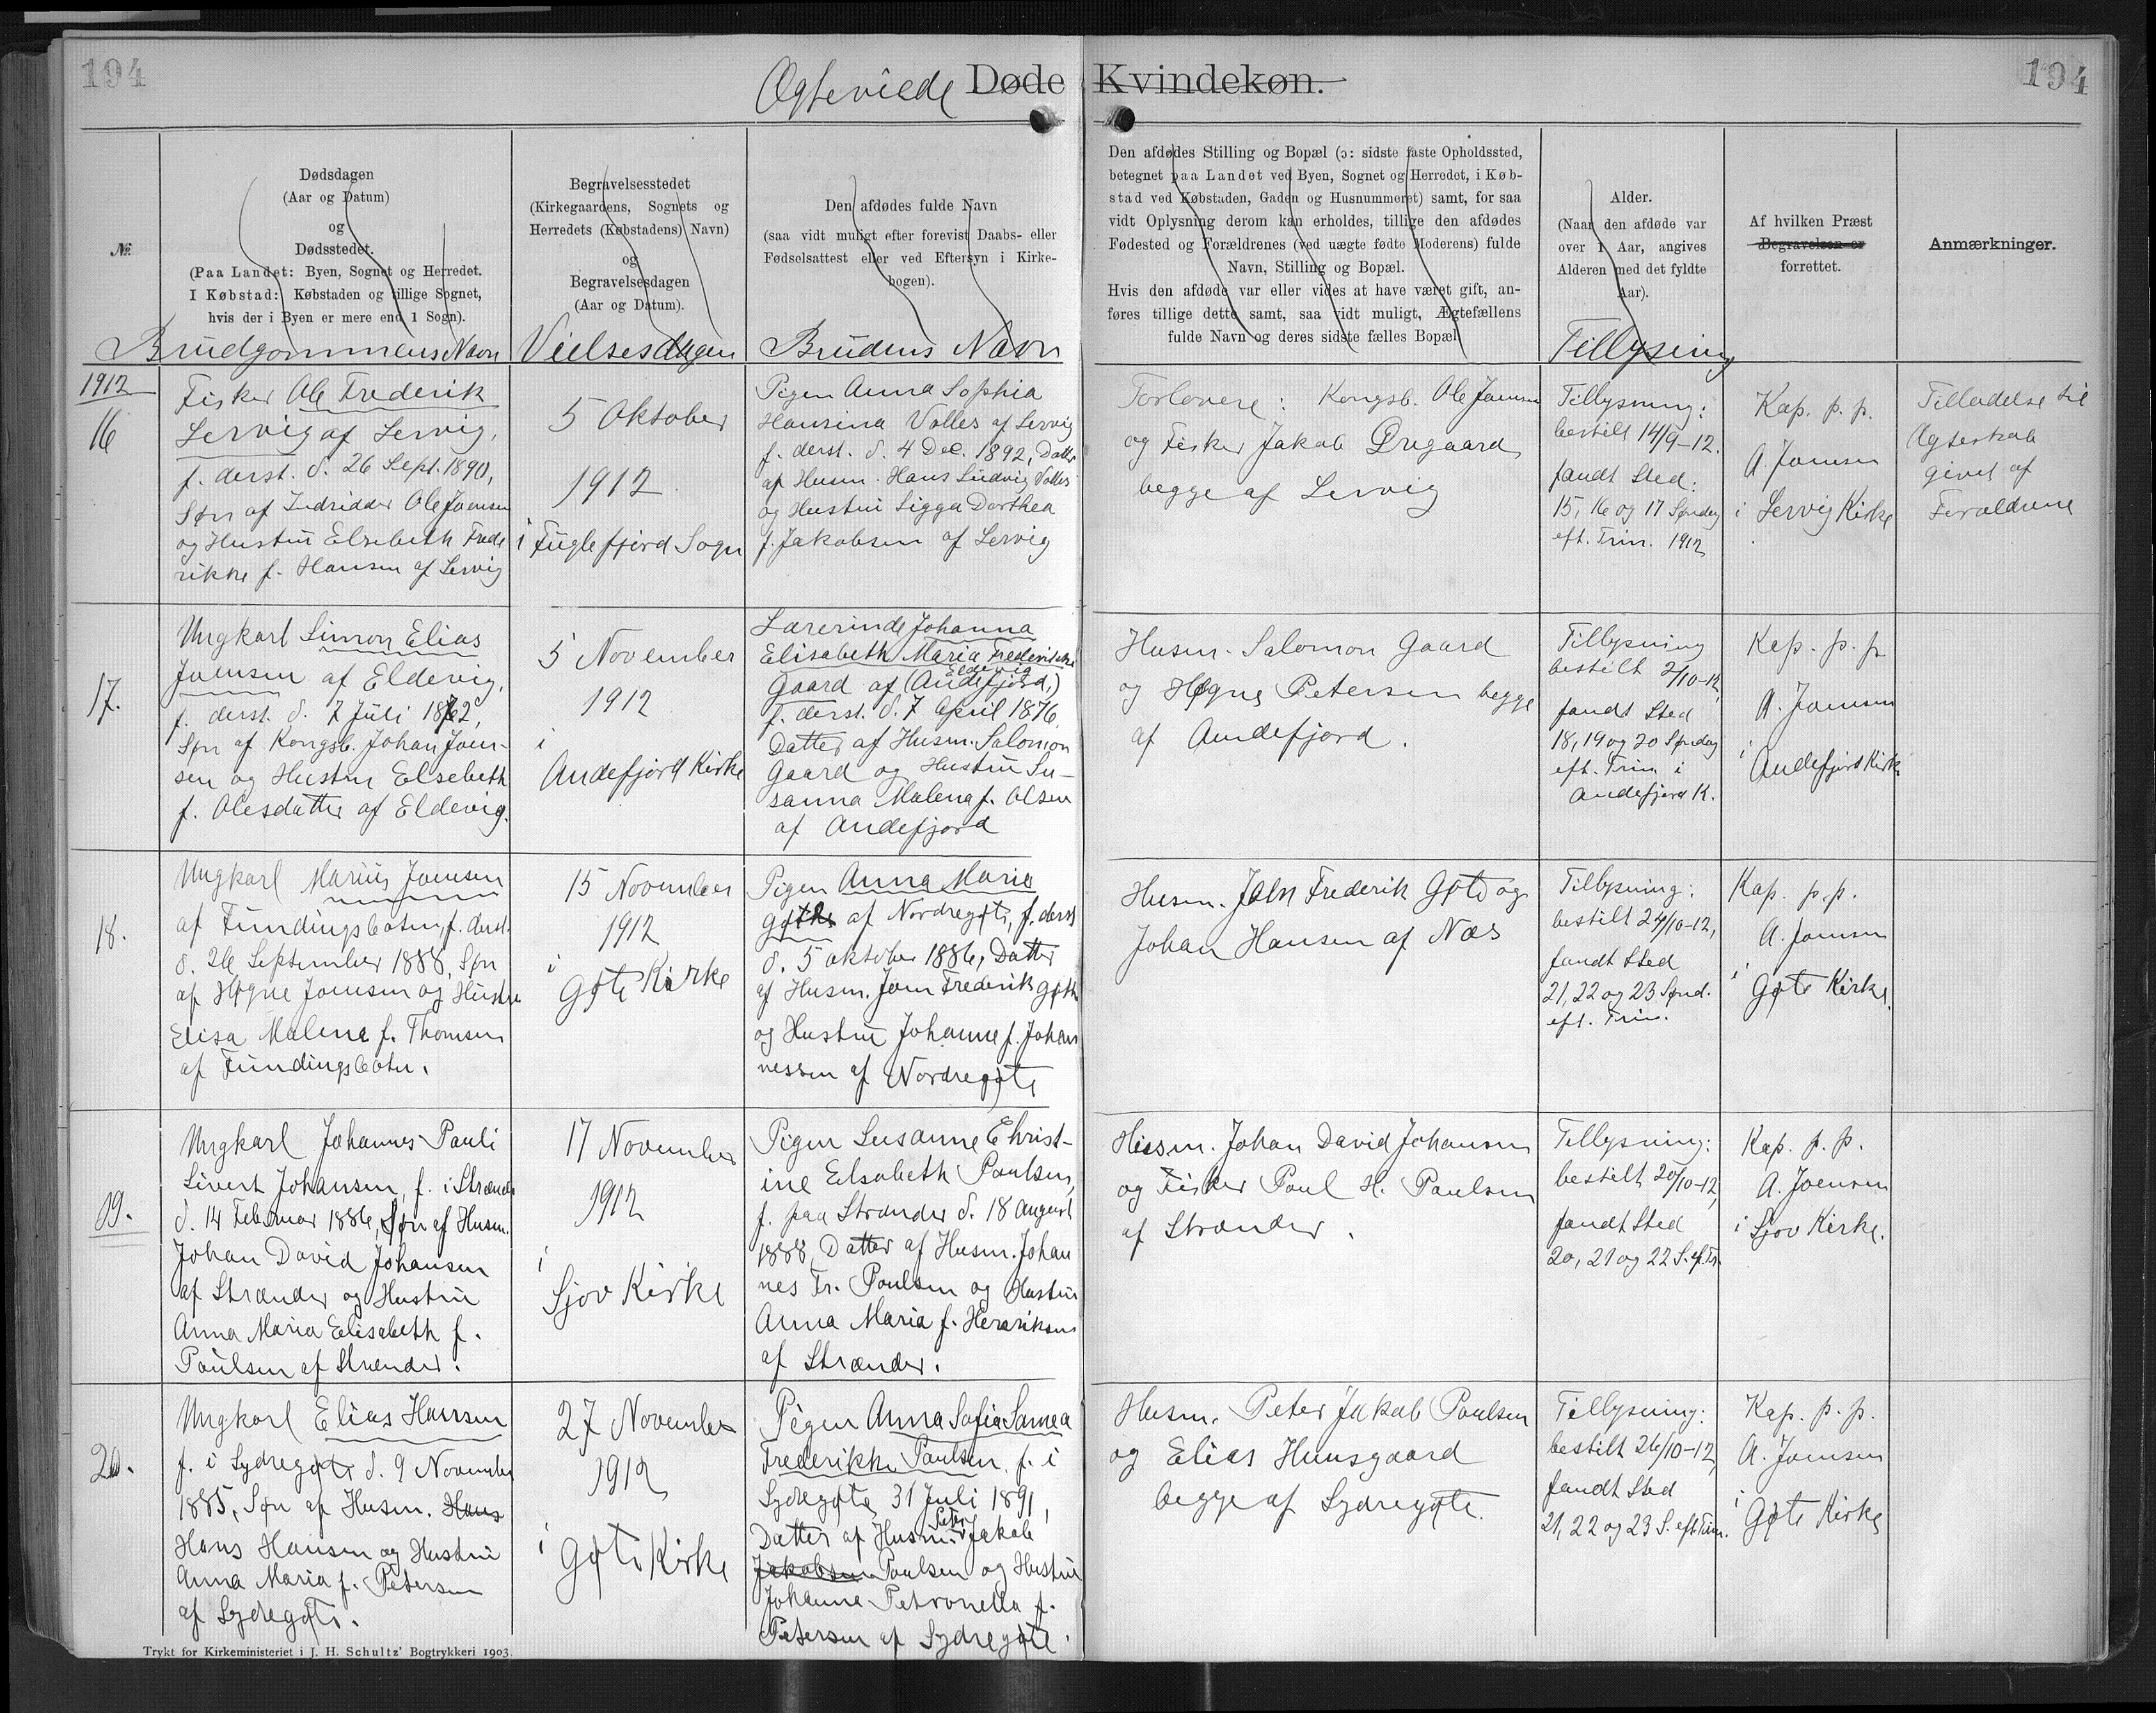 194
Ægteviede Døde Kvindekøn.
194
№
Dødsdagen
(Aar og Datum)
og
Dødsstedet.
(Paa Landet: Byen, Sognet og Herredet.
I Købstad: Købstaden og tillige Sognet,
hvis der i Byen er mere end 1 Sogn).
Brudgommens Navn
Begravelsesstedet
(Kirkegaardens, Sognets og
Herredets (Købstadens) Navn)
og
Begravelsesdagen
(Aar og Datum).
Vielsesdagen
Den afdødes fulde Navn
(saa vidt muligt efter forevist Daabs- eller
Fødselsattest eller ved Eftersyn i Kirke-
bogen).
Brudens Navn
Den afdødes Stilling og Bopæl (ɔ: sidste faste Opholdssted,
betegnet paa Landet ved Byen, Sognet og Herredet, i Køb-
stad ved Købstaden, Gaden og Husnummeret) samt, for saa
vidt Oplysning derom kan erholdes, tillige den afdødes
Fødested og Forældrenes (ved uægte fødte Moderens) fulde
Navn, Stilling og Bopæl.
Hvis den afdøde var eller vides at have været gift, an-
føres tillige dette samt, saa vidt muligt, Ægtefællens
fulde Navn og deres sidste fælles Bopæl.
Alder.
(Naar den afdøde var
over 1 Aar, angives
Alderen med det fyldte
Aar).
Tillysning
Af hvilken Præst
Begravelsen er
forrettet.
Anmærkninger.
1912
16
Fisker Ole Frederik
Lervig af Lervig,
f. derst. d. 26 Sept. 1890,
Søn af Indsidder Ole Joensen
og Hustru Elsebeth Frede
rikke f. Hansen af Lervig
5 Oktober
1912
i Fuglefjord Sogn
Pigen Anna Sophia
Hansina Volles af Lervig
f. derst. d. 4 Dec. 1892, Datter
af Husm. Hans Ludvig Volles
og Hustru Sigga Dorthea
f. Jakobsen af Lervig
Forlovere: Kongsb. Ole Joensen
og Fisker Jakob Øregaard
begge af Lervig
Tillysning:
bestilt 14/9-12.
fandt Sted:
15, 16 og 17 Søndag
eft. Trin. 1912
Kap. p. p.
A. Joensen
i Lervig Kirke
Tilladelse til
Ægteskab
givet af
Forældrene
17.
Ungkarl Simon Elias
Joensen af Eldevig,
f. derst. d. 7 Juli 1872,
Søn af Kongsb. Johan Joen-
sen og Hustru Elsebeth
f. Olesdatter af Eldevig.
5 November
1912
i
Andefjord Kirke
Lærerinde Johanna
Elisabeth Maria Frederikke
Eldevig
Gaard af (Andefjord,)
f. derst. d. 7 April 1876,
Datter af Husm. Salomon
Gaard og Hustru Su-
sanna Malena f. Olsen
af Andefjord
Husm. Salomon Gaard
og Høgne Petersen begge
af Andefjord.
Tillysning
bestilt 2/10-12,
fandt Sted
18, 19 og 20 Søndag
eft. Trin i
Andefjord K.
Kap. p. p
A. Joensen
i
Andefjord Kirke
18.
Ungkarl Marius Joensen
af Fundingsbotn, f. derst.
d. 26 September 1888, Søn
af Høgne Joensen og Hustru
Elisa Malena f. Thomsen
af Fundingsbotn.
15 November
1912
i
Gøte Kirke
Pigen Anna Marie
Gøthe af Nordregøte, f. derst
d. 5 oktober 1886, Datter
af Husm. Joen Frederik Gøthe
og Hustru Johanne f. Johan
nessen af Nordregøte
Husm. Joen Frederik Gøte og
Johan Hansen af Næs
Tillysning:
bestilt 24/10-12,
fandt Sted
21, 22 og 23 Sønd.
eft. Trin.
Kap. p. p.
A. Joensen
i
Gøte Kirke.
19.
Ungkarl Johannes Pauli
Sivert Johansen, f. i Strænder
d. 14 Februar 1886, Søn af Husm.
Johan David Johansen
af Strænder og Hustru
Anna Maria Elisabeth f.
Poulsen af Strænder.
17 November
1912
i
Sjov Kirke
Pigen Susanne Christ-
ine Elsabeth Poulsen,
f. paa Strænder d. 18 August
1888, Datter af Husm. Johan
nes Fr. Poulsen og Hustru
Anna Maria f. Henriksen
af Strænder.
Husm. Johan David Johansen
og Fisker Poul H. Poulsen
af Strænder.
Tillysning:
bestilt 20/10-12,
fandt Sted
20, 21 og 22 S. ef. Tr.
Kap. p. p.
A. Joensen
i Sjov Kirke.
20.
Ungkarl Elias Hansen
f. i Sydregøte d. 9 November
1885, Søn af Husm. Hans
Hans Hansen og Hustru
Anna Maria f. Petersen
af Sydregøte.
27 November
1912
i
Gøte Kirke
Pigen Anna Sofia Sanea
Frederikke Poulsen, f. i
Sydregøte 31 Juli 1891,
Peter
Datter af Husm. Jakob
Jakobsen Poulsen og Hustru
Johanna Petronella f.
Petersen af Sydregøte.
Husm. Peter Jakob Poulsen
og Elias Hunsgaard
begge af Sydregøte.
Tillysning:
bestilt 26/10-12,
fandt Sted
21, 22 og 23 S. eft Trin.
Kap. p. p.
A. Joensen
i
Gøte Kirke
Trykt for Kirkeministeriet i J. H. Schultz' Bogtrykkeri 1903.